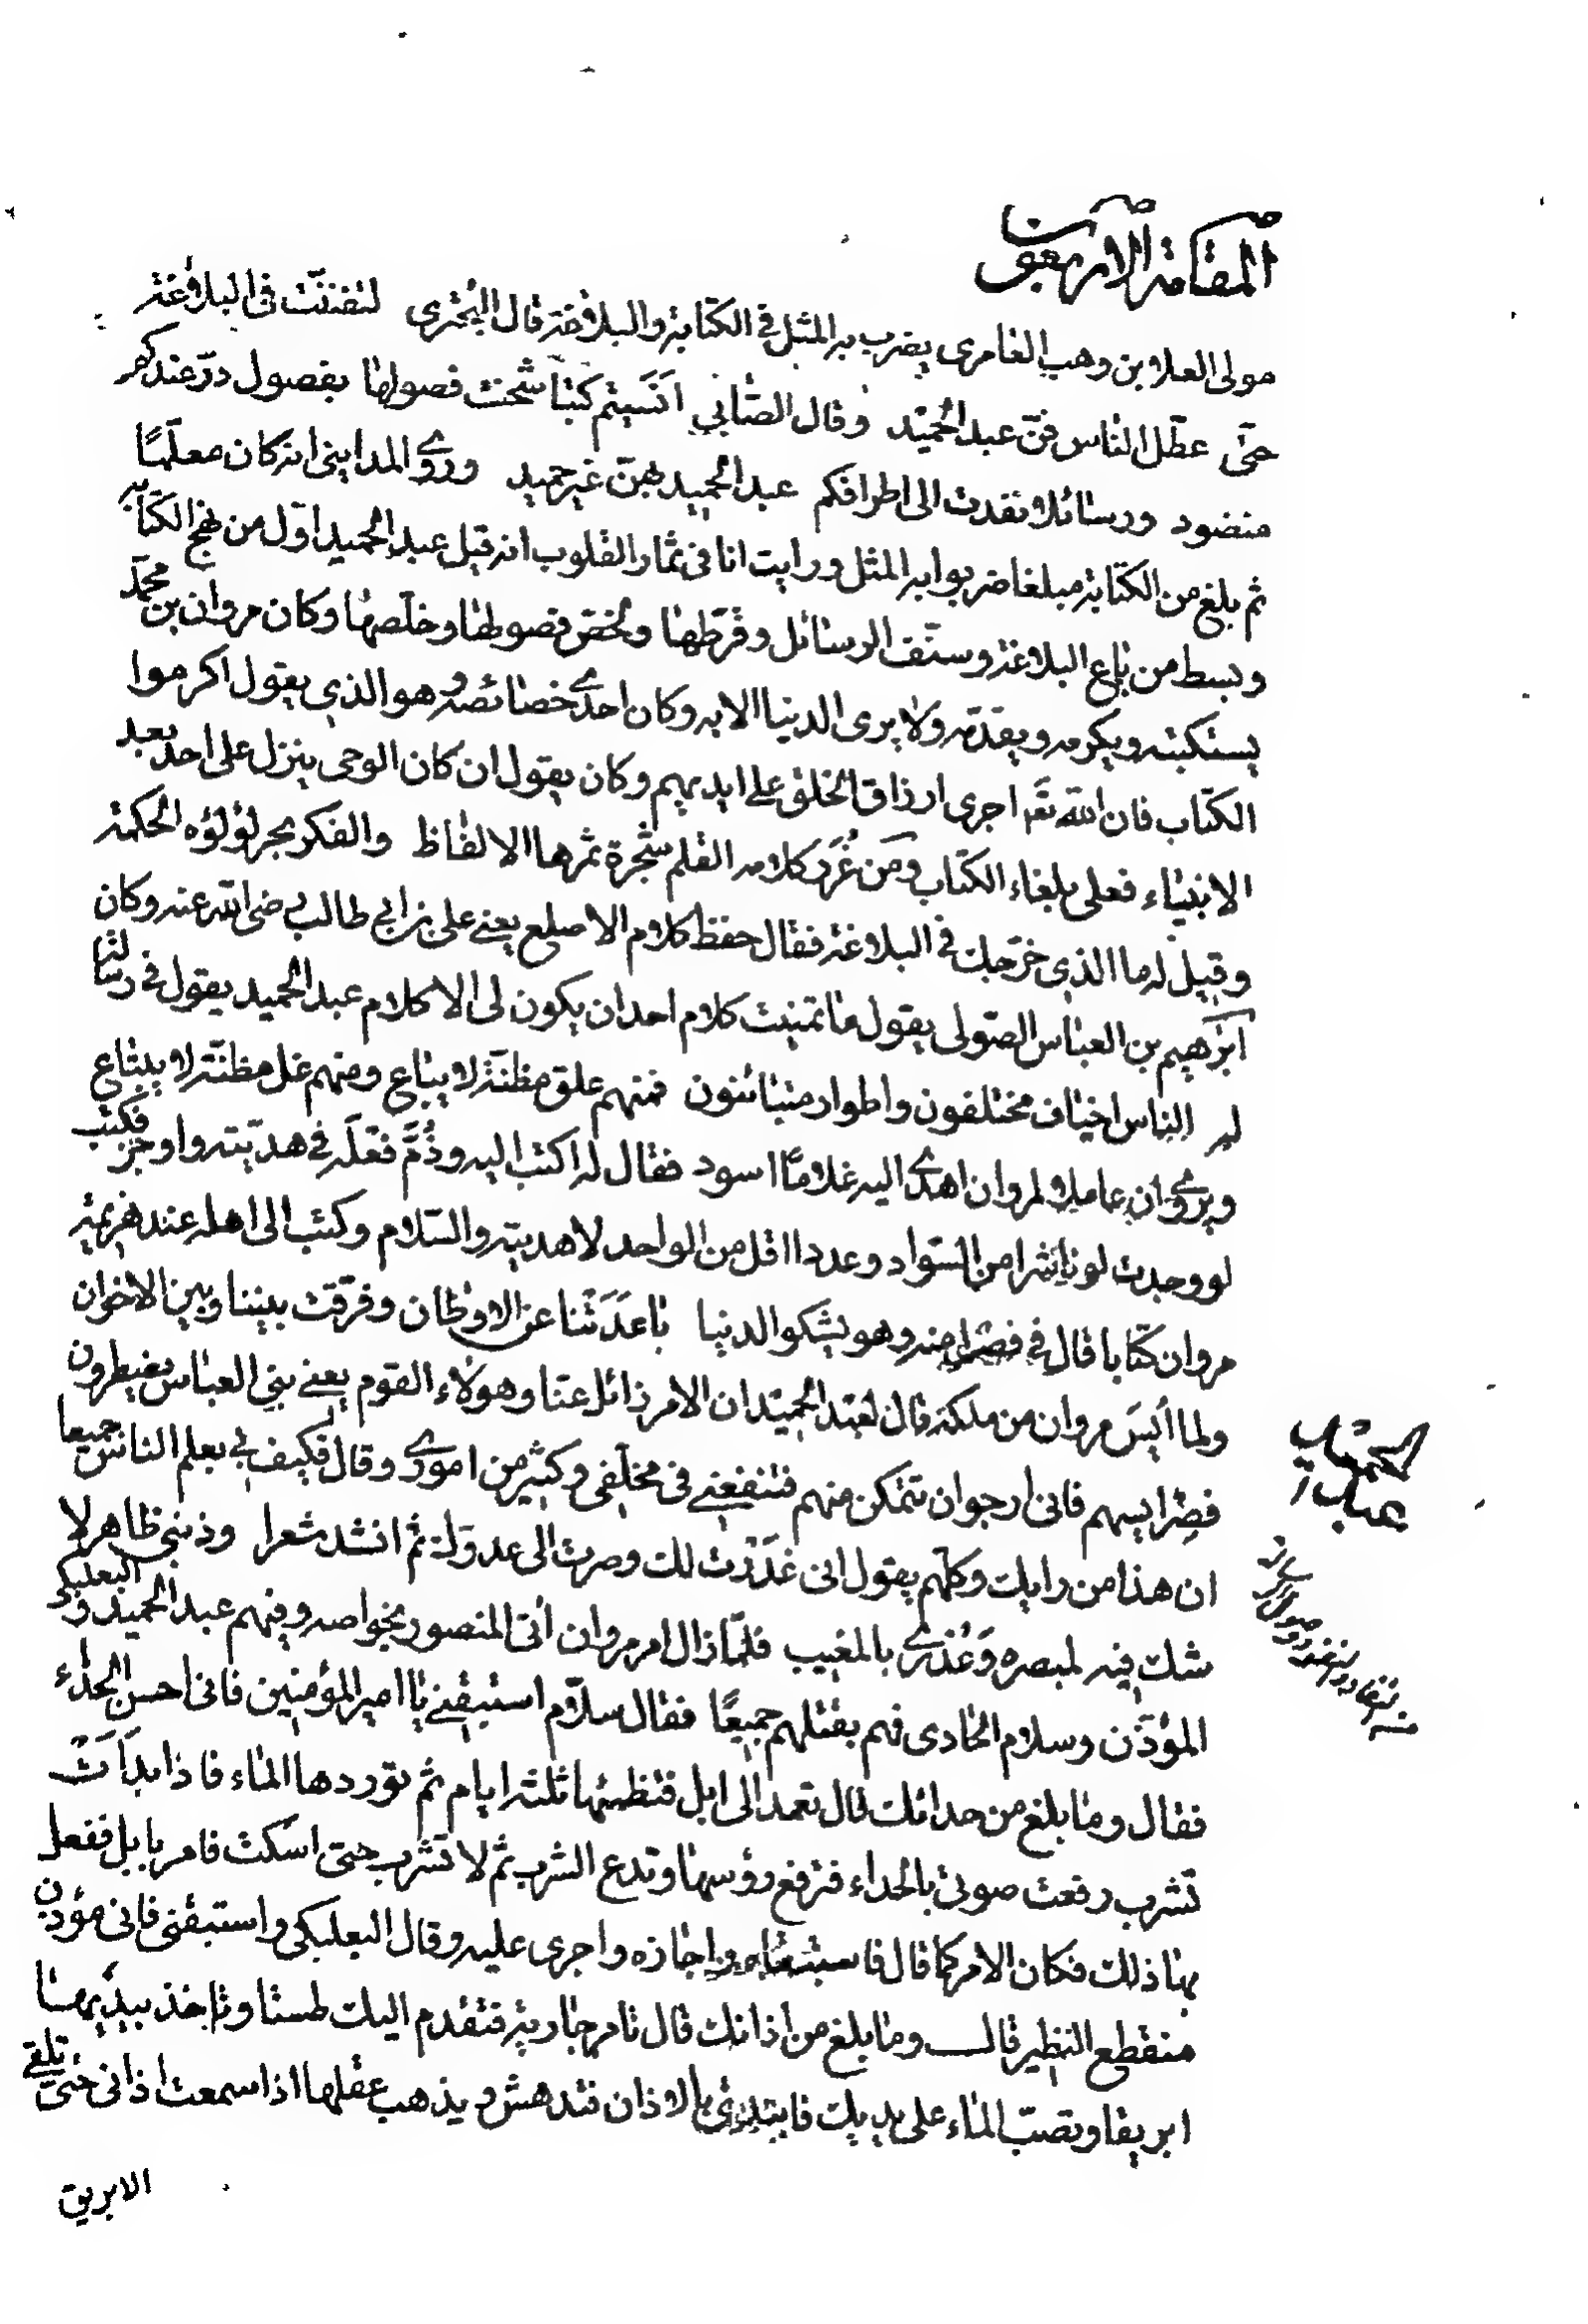 المقامة الاربعون
مولى العلا بن وهب العامرى يضرب به المثل فى الكتابة والبلاغة قال البحترى لتفننت فى البلاغة
حتى عطل الناس فن عبد الحميد وقال الصابى انسيتم كتبا شحنت فصولها بفصول در عندكم
منضود ورسائلا نفدت الى اطرافكم عبد الحميد بهن غير حميد وروى المداينى انه كان معلما
ثم بلغ من الكتابة مبلغا ضربوا به المثل ورايت انا فى ثمار القلوب انه قيل عبد الحميد اول من نهج الكتابة
وبسط من باع البلاغة وسنف الرسائل وقرطها ولخص فصولها وخلصها وكان مروان بن محمد
يستكتبه ويكرمه ويقدمه ولا يرى الدنيا الا به وكان احدى خصائصه وهو الذى يقول اكرموا
الكتاب فان الله تعـ اجرى ارزاق الخلق على ايديهم وكان يقول ان كان الوحى ينزل على احد بعد
الانبياء فعلى بلغاء الكتاب ومن غرر كلامه القلم شجرة ثمرها الالفاظ والفكر بحر لؤلؤه الحكمة
وقيل له ما الذى خرجك فى البلاغة فقال حفظ كلام الاصلع يعنى على بن ابى طالب رضى الله عنه وكان
ابرهيم بن العباس الصولى يقول ما تمنيت كلام احد ان يكون لى الا كلام عبد الحميد يقول فى رسالة
له الناس اخياف مختلفون واطوار متبائنون فمنهم علق مظنة لا يباع ومنهم غل مظنة لا يبتاع
ويروى ان عاملا لمروان اهدى اليه غلاما اسود فقال له اكتب اليه وذم فعله فى هديته واوجز فكتب
لو وجدت لونا شرا من السواد وعددا اقل من الواحد لاهديته والسلام وكتب الى اهله عند هزيمة
مروان كتابا قال فى فصل منه وهو يشكو الدنيا باعدتنا عن الاوطان وفرقت بيننا وبين الاخوان
ولما ايس مروان من ملكه قال لعبد الحميد ان الامر زائل عنا وهولاء القوم يعنى بنى العباس يضطرون
فصر اليهم فانى ارجو ان تتمكن منهم فتنفعنى فى مخلفى وكثير من امورى وقال فكيف لى بعلم الناس جميعا
ان هذا من رايك وكلهم يقول انى غدرت لك وصرت الى عدوك ثم انشد شعرا وذنبى ظاهر لا
شك فيه لمبصره وعذرى بالمغيب فلما زال امر مروان اتى المنصور بخواصه وفيهم عبد الحميد والبعلبكى
المؤذن وسلام الحادى فهم بقتلهم جميعا فقال سلام استبقنى يا امير المؤمنين فانى احسن الحداء
فقال وما بلغ من حدائك قال تعمد الى ابل فتظمئها ثلثة ايام ثم توردها الماء فاذا بدات
تشرب رفعت صوتى بالحداء فترفع رؤسها وتدع الشرب ثم لا تشرب حتى اسكت فامر بابل ففعل
بها ذلك فكان الامر كما قال فاستبقاه واجازه واجرى عليه وقال البعلبكى واستبقنى فانى مؤذن
منقطع النظير قال وما بلغ من اذانك قال تامر جارية فتقدم اليك طستا وتاخذ بيديها
ابريقا وتصب الماء على يديك فابتدئ بالاذان فتدهش ويذهب عقلها اذا سمعت اذانى حتى تلقى
الابريق
عبد الحميد